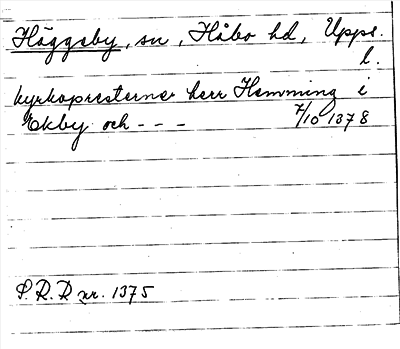 Häggeby, sn, Håbo hd, Uppl.
l.
kyrkopresterne herr Hemming i
Ekby och - - - 7/10 1378
S. R. R nr. 1375